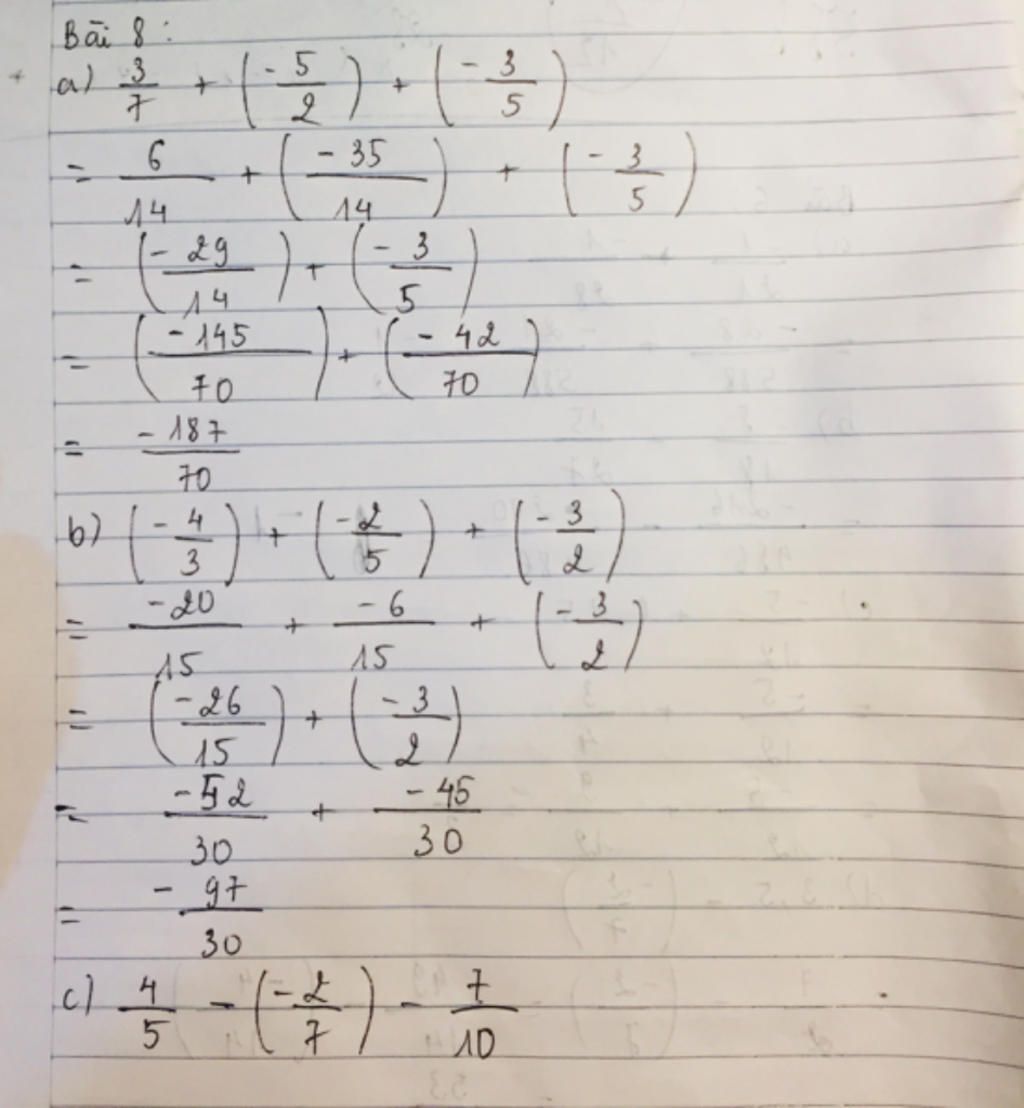 Bài 8:
a) 3/7 + (-5/2) + (-3/5)
= 6/14 + (-35/14) + (-3/5)
= (-29/14) + (-3/5)
= (-145/70) + (-42/70)
= -187/70
b) (-4/3) + (-2/5) + (-3/2)
= -20/15 + -6/15 + (-3/2)
= (-26/15) + (-3/2)
= -52/30 + -45/30
= -97/30
c) 4/5 - (-2/7) - 7/10